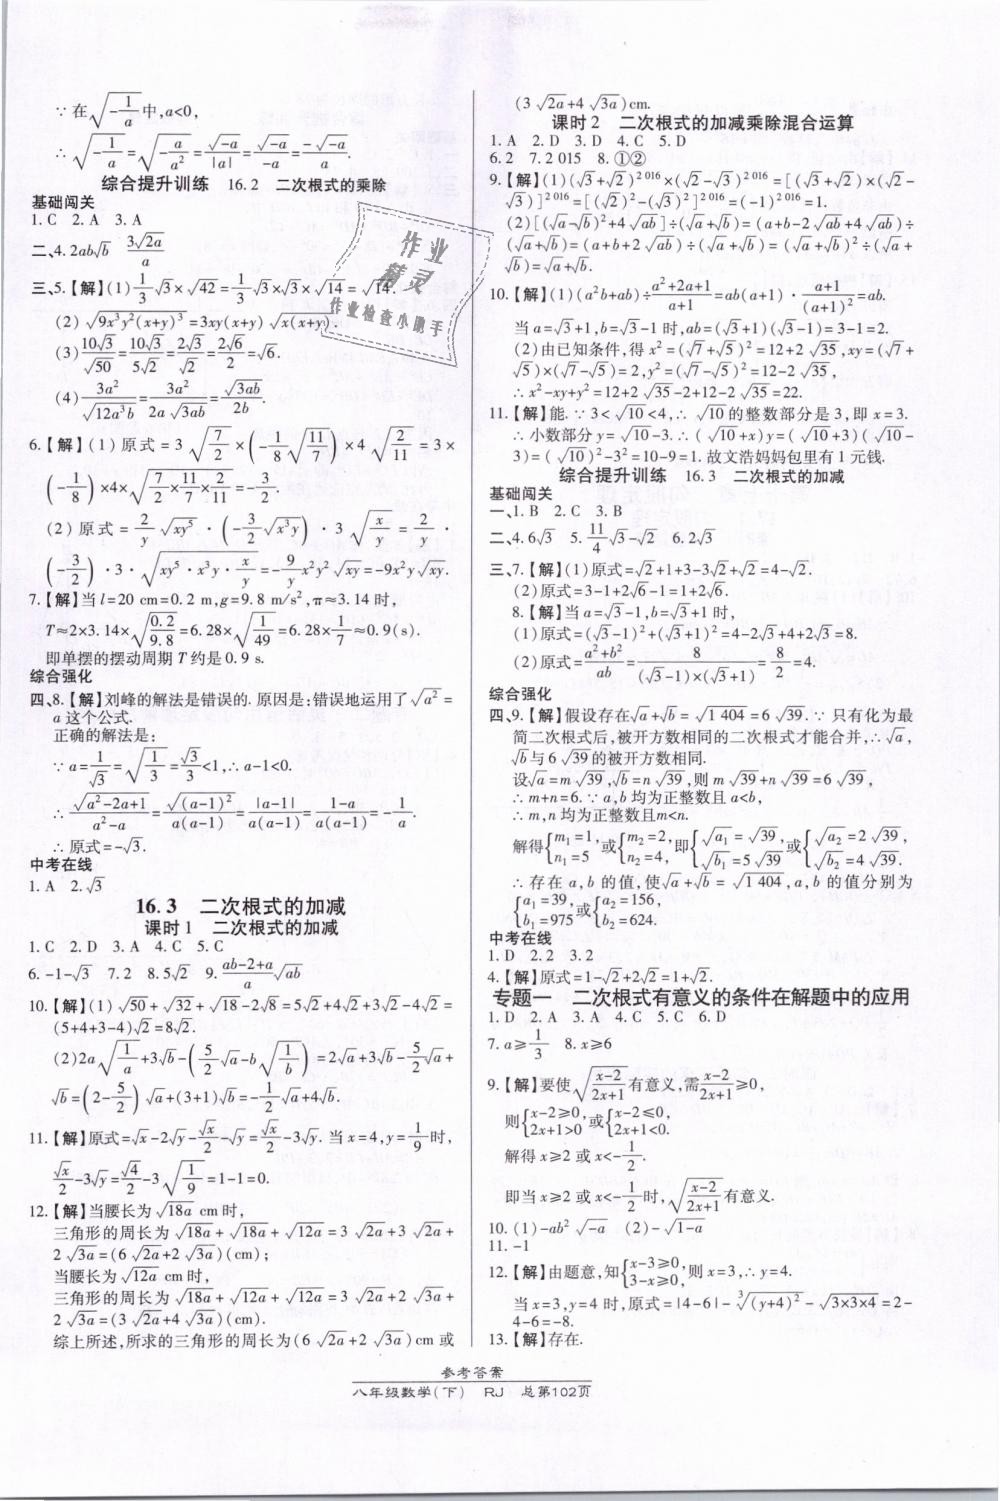 ∵在√(-1/a)中,a<0,
∴√(-1/a)=√(-a/a²)=√(-a)/|a|=√(-a)/(-a)=-√(-a)/a.
综合提升训练 16.2 二次根式的乘除
基础闯关
1. C 2. A 3. A
二、4. 2ab√b 3√(2a)/a
三、5.【解】(1) 1/3 √3×√42=1/3 √3×√3×√14=√14.
(2) √(9x³y²(x+y)³)=3xy(x+y)√(x(x+y)).
(3) 10√3/√50=10√3/5√2=2√3/√2=2√6/2=√6.
(4) 3a²/√(12a³b)=3a²/(2a√(3ab))=√(3ab)/2b.
6.【解】(1)原式=3√(7/2)×(-1/8 √(11/7))×4√(2/11)=3×
(-1/8)×4×√(7/2×11/7×2/11)=-3/2.
(2)原式=2/y √(xy⁵)·(-3/2 √(x³y))·3√(x/y)=2/y·
(-3/2)·3·√(xy⁵·x³y·x/y)=-9/y x²y²√(xy)=-9x²y√(xy).
7.【解】当l=20 cm=0.2 m,g=9.8 m/s²,π≈3.14时,
T≈2×3.14×√(0.2/9.8)=6.28×√(1/49)=6.28×1/7≈0.9(s).
即单摆的摆动周期T约是0.9 s.
综合强化
四、8.【解】刘峰的解法是错误的. 原因是:错误地运用了√(a²)=
a这个公式.
正确的解法是:
∵a=1/√3=√(1/3)=√3/3<1,∴a-1<0.
∴√(a²-2a+1)/(a²-a)=√((a-1)²)/(a(a-1))=|a-1|/(a(a-1))=(1-a)/(a(a-1))=-1/a.
∴原式=-√3.
中考在线
1. A 2. √3
16.3 二次根式的加减
课时1 二次根式的加减
1. C 2. D 3. A 4. C 5. C
6. -1-√3 7. 2 8. 5√2 9. (ab-2+a)/a √(ab)
10.【解】(1)√50+√32+√18-2√8=5√2+4√2+3√2-4√2=
(5+4+3-4)√2=8√2.
(2)2a√(1/a)+3√b-(5/2 √a-b√(1/b))=2√a+3√b-5/2 √a+
√b=(2-5/2)√a+(3+1)√b=-1/2 √a+4√b.
11.【解】原式=√x-2√y-√x/2-√y=√x/2-3√y. 当x=4,y=1/9时,
√x/2-3√y=√4/2-3√(1/9)=1-1=0.
12.【解】当腰长为√(18a) cm时,
三角形的周长为√(18a)+√(18a)+√(12a)=3√(2a)+3√(2a)+
2√(3a)=(6√(2a)+2√(3a))(cm);
当腰长为√(12a) cm时,
三角形的周长为√(18a)+√(12a)+√(12a)=3√(2a)+2√(3a)+
2√(3a)=(3√(2a)+4√(3a))(cm).
综上所述,所求的三角形的周长为(6√(2a)+2√(3a))cm或
(3√(2a)+4√(3a))cm.
课时2 二次根式的加减乘除混合运算
1. A 2. D 3. D 4. C 5. D
6. 2 7. 2 015 8. ①②
9.【解】(1)(√3+√2)²⁰¹⁶×(√2-√3)²⁰¹⁶=[(√3+√2)×(√2-
√3)]²⁰¹⁶=[(√2)²-(√3)²]²⁰¹⁶=(-1)²⁰¹⁶=1.
(2)[(√a-√b)²+4√(ab)]÷(√a+√b)=(a+b-2√(ab)+4√(ab))÷
(√a+√b)=(a+b+2√(ab))÷(√a+√b)=(√a+√b)²÷(√a+
√b)=√a+√b.
10.【解】(1)(a²b+ab)÷(a²+2a+1)/(a+1)=ab(a+1)·(a+1)/(a+1)²=ab.
当a=√3+1,b=√3-1时,ab=(√3+1)(√3-1)=3-1=2.
(2)由已知条件,得x²=(√7+√5)²=12+2√35,xy=(√7+
√5)×(√7-√5)=2,y²=(√7-√5)²=12-2√35,
∴x²-xy+y²=12+2√35-2+12-2√35=22.
11.【解】能. ∵3<√10<4,∴√10的整数部分是3,即x=3.
∴小数部分y=√10-3. ∴(√10+x)y=(√10+3)(√10-
3)=(√10)²-3²=10-9=1. 故文浩妈妈包里有1元钱.
综合提升训练 16.3 二次根式的加减
基础闯关
一、1. B 2. C 3. B
二、4. 6√3 5. 11/4 √3-√2 6. 2√3
三、7.【解】(1)原式=√2+1+3-3√2+√2=4-√2.
(2)原式=3-1+2√6-1=1+2√6.
8.【解】当a=√3-1,b=√3+1时,
(1)原式=(√3-1)²+(√3+1)²=4-2√3+4+2√3=8.
(2)原式=(a²+b²)/ab=8/((√3-1)×(√3+1))=8/2=4.
综合强化
四、9.【解】假设存在√a+√b=√(1 404)=6√39. ∵只有化为最
简二次根式后,被开方数相同的二次根式才能合并,∴√a,
√b与6√39的被开方数相同.
设√a=m√39,√b=n√39,则m√39+n√39=6√39,
∴m+n=6. ∵a,b均为正整数且a<b,
∴m,n均为正整数且m<n.
解得{m₁=1, n₁=5 或{m₂=2, n₂=4, 即{√a₁=√39, √b₁=5√39 或{√a₂=2√39, √b₂=4√39.
∴存在a,b的值,使√a+√b=√(1 404),a,b的值分别为
{a₁=39, b₁=975 或{a₂=156, b₂=624.
中考在线
1. D 2. 2 3. 2
4.【解】原式=1-√2+2√2=1+√2.
专题一 二次根式有意义的条件在解题中的应用
1. D 2. A 3. A 4. C 5. C 6. D
7. a≥1/3 8. x≥6
9.【解】要使√((x-2)/(2x+1))有意义,需(x-2)/(2x+1)≥0,
则{x-2≥0, 2x+1>0 或{x-2≤0, 2x+1<0.
解得x≥2或x<-1/2.
即当x≥2或x<-1/2时,√((x-2)/(2x+1))有意义.
10. (1)-ab²√(-a) (2)-√(1-a)
11. -1
12.【解】由题意,知{x-3≥0, 3-x≥0, 则x=3,∴y=4.
当x=3,y=4时,原式=|4-6|-∛((y+4)²)-√(3×3×4)=2-
4-6=-8.
13.【解】存在.
参考答案
八年级数学(下) RJ 总第102页
作业
精灵
作业检查小助手